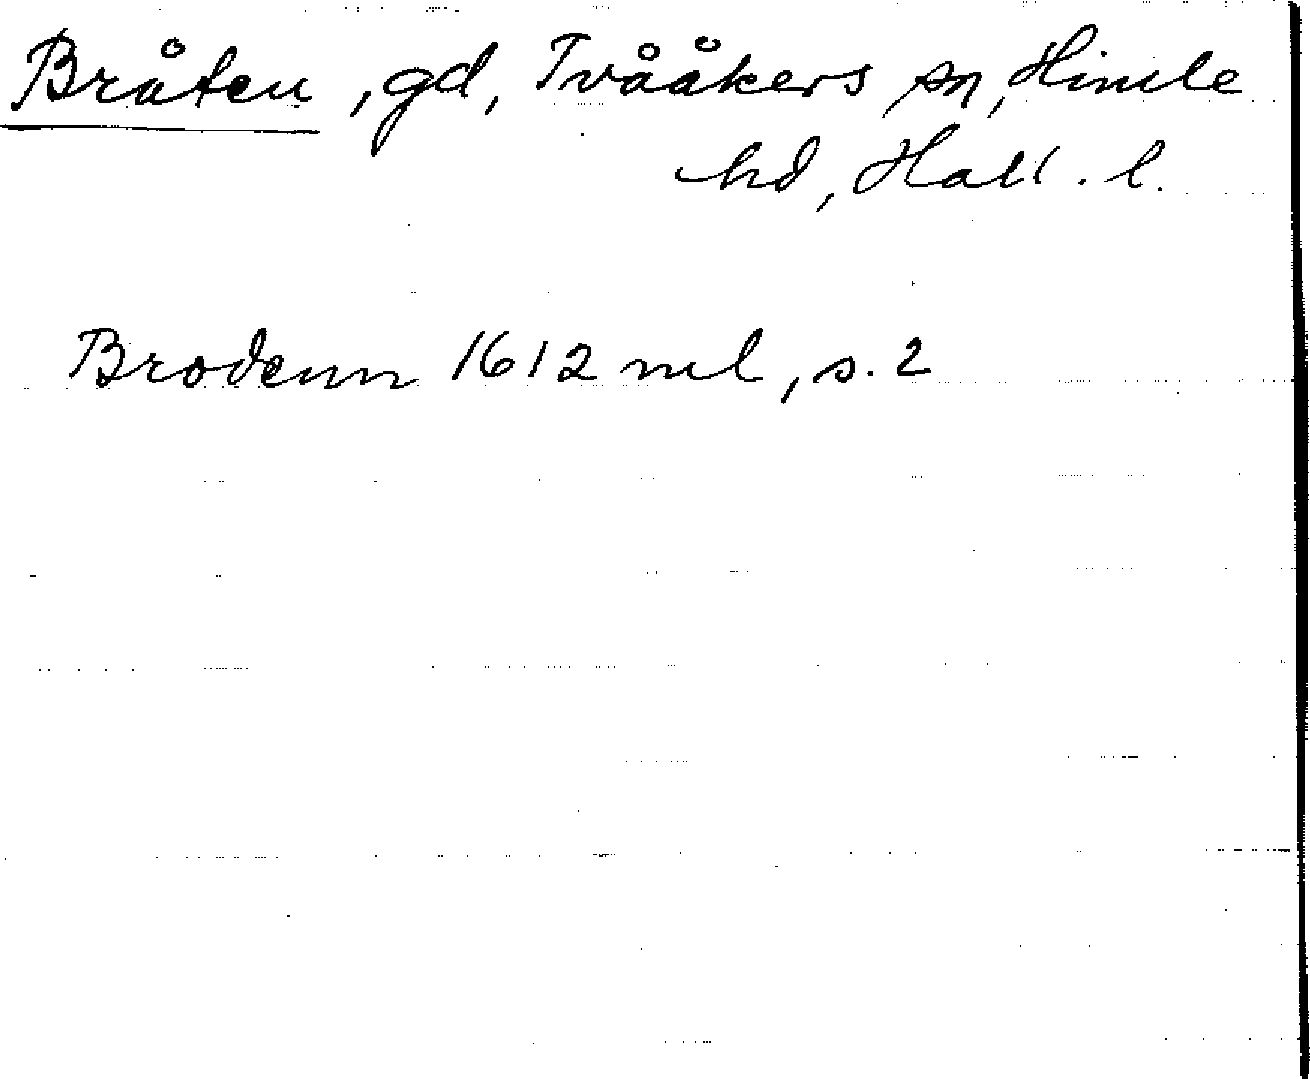 Bråten, gd, Tvååkers sn, Himle
hd, Hall. l.
Brodenn 1612 ml, s. 2